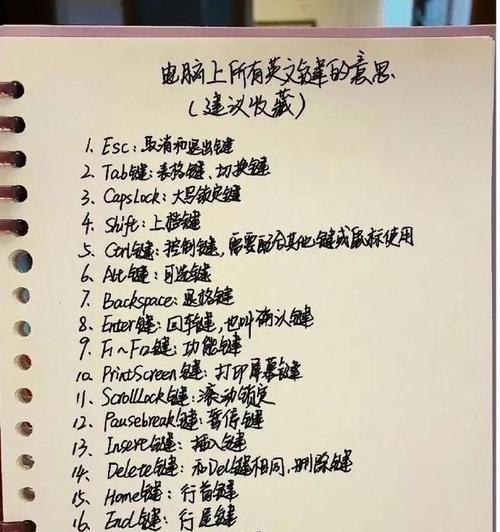 电脑上所有英文键的意思
(建议收藏)
1. Esc: 取消和退出键
2. Tab键: 表格键、切换键
3. CapsLock: 大写锁定键
4. Shift: 上档键
5. Ctrl键: 控制键, 需要配合其他键或鼠标使用
6. Alt键: 可选键
7. Backspace: 退格键
8. Enter键: 回车键, 也叫确认键
9. F1~F12键: 功能键
10. PrintScreen键: 打印屏幕键
11. ScrollLock键: 滚动锁定
12. Pausebreak键: 暂停键
13. Insert键: 插入键
14. Delete键: 和Del键相同, 删除键
15. Home键: 行首键
16. End键: 行尾键